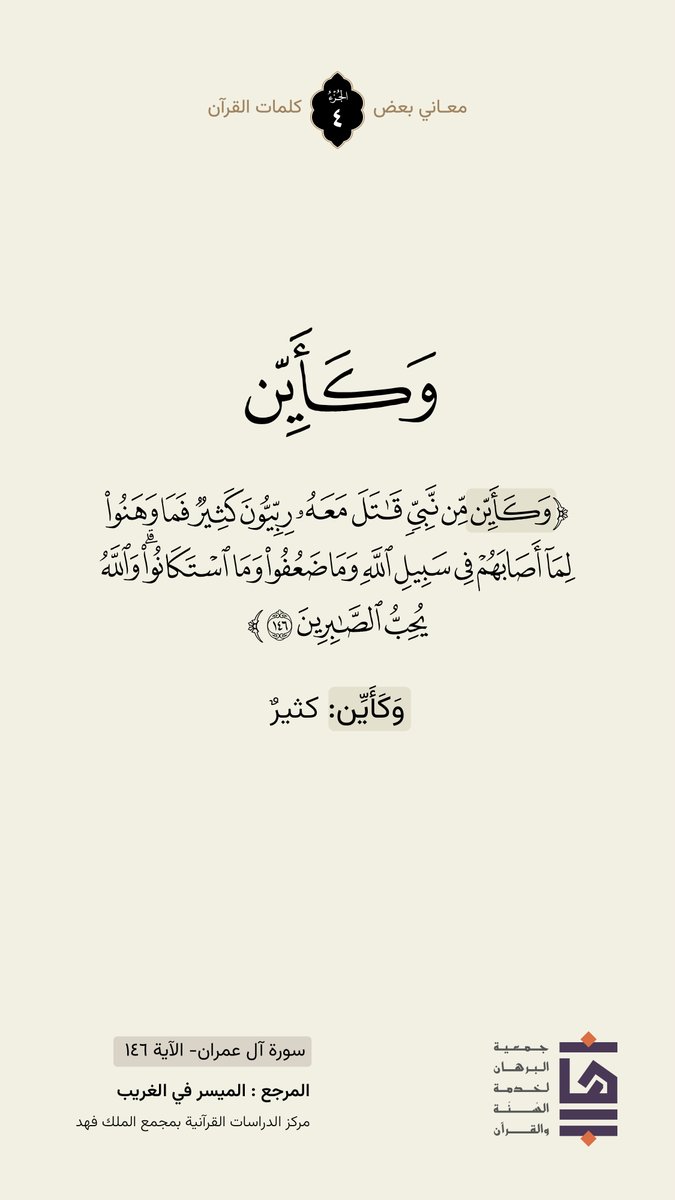 معـاني بعض الجُزْءُ ٤ كلمات القرآن
وَكَأَيِّن
﴿وَكَأَيِّن مِّن نَّبِيّٖ قَٰتَلَ مَعَهُۥ رِبِّيُّونَ كَثِيرٞ فَمَا وَهَنُواْ
لِمَآ أَصَابَهُمۡ فِي سَبِيلِ ٱللَّهِ وَمَا ضَعُفُواْ وَمَا ٱسۡتَكَانُواْۗ وَٱللَّهُ
يُحِبُّ ٱلصَّٰبِرِينَ ١٤٦﴾
وَكَأَيِّن: كثيرٌ
سورة آل عمران- الآية ١٤٦
المرجع : الميسر في الغريب
مركز الدراسات القرآنية بمجمع الملك فهد
جـمـعـيـة
الـبـرهــان
لـخـدمــة
السُّـنَّـة
والقــرآن